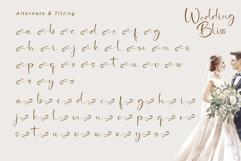 Alternate & Titling
Wedding
Bliss
a b c d e f g
h i j k l m n e
p q r s t u v w
x y z
a b c d e f g h i
j k l m n o p q r
s t u v w x y z